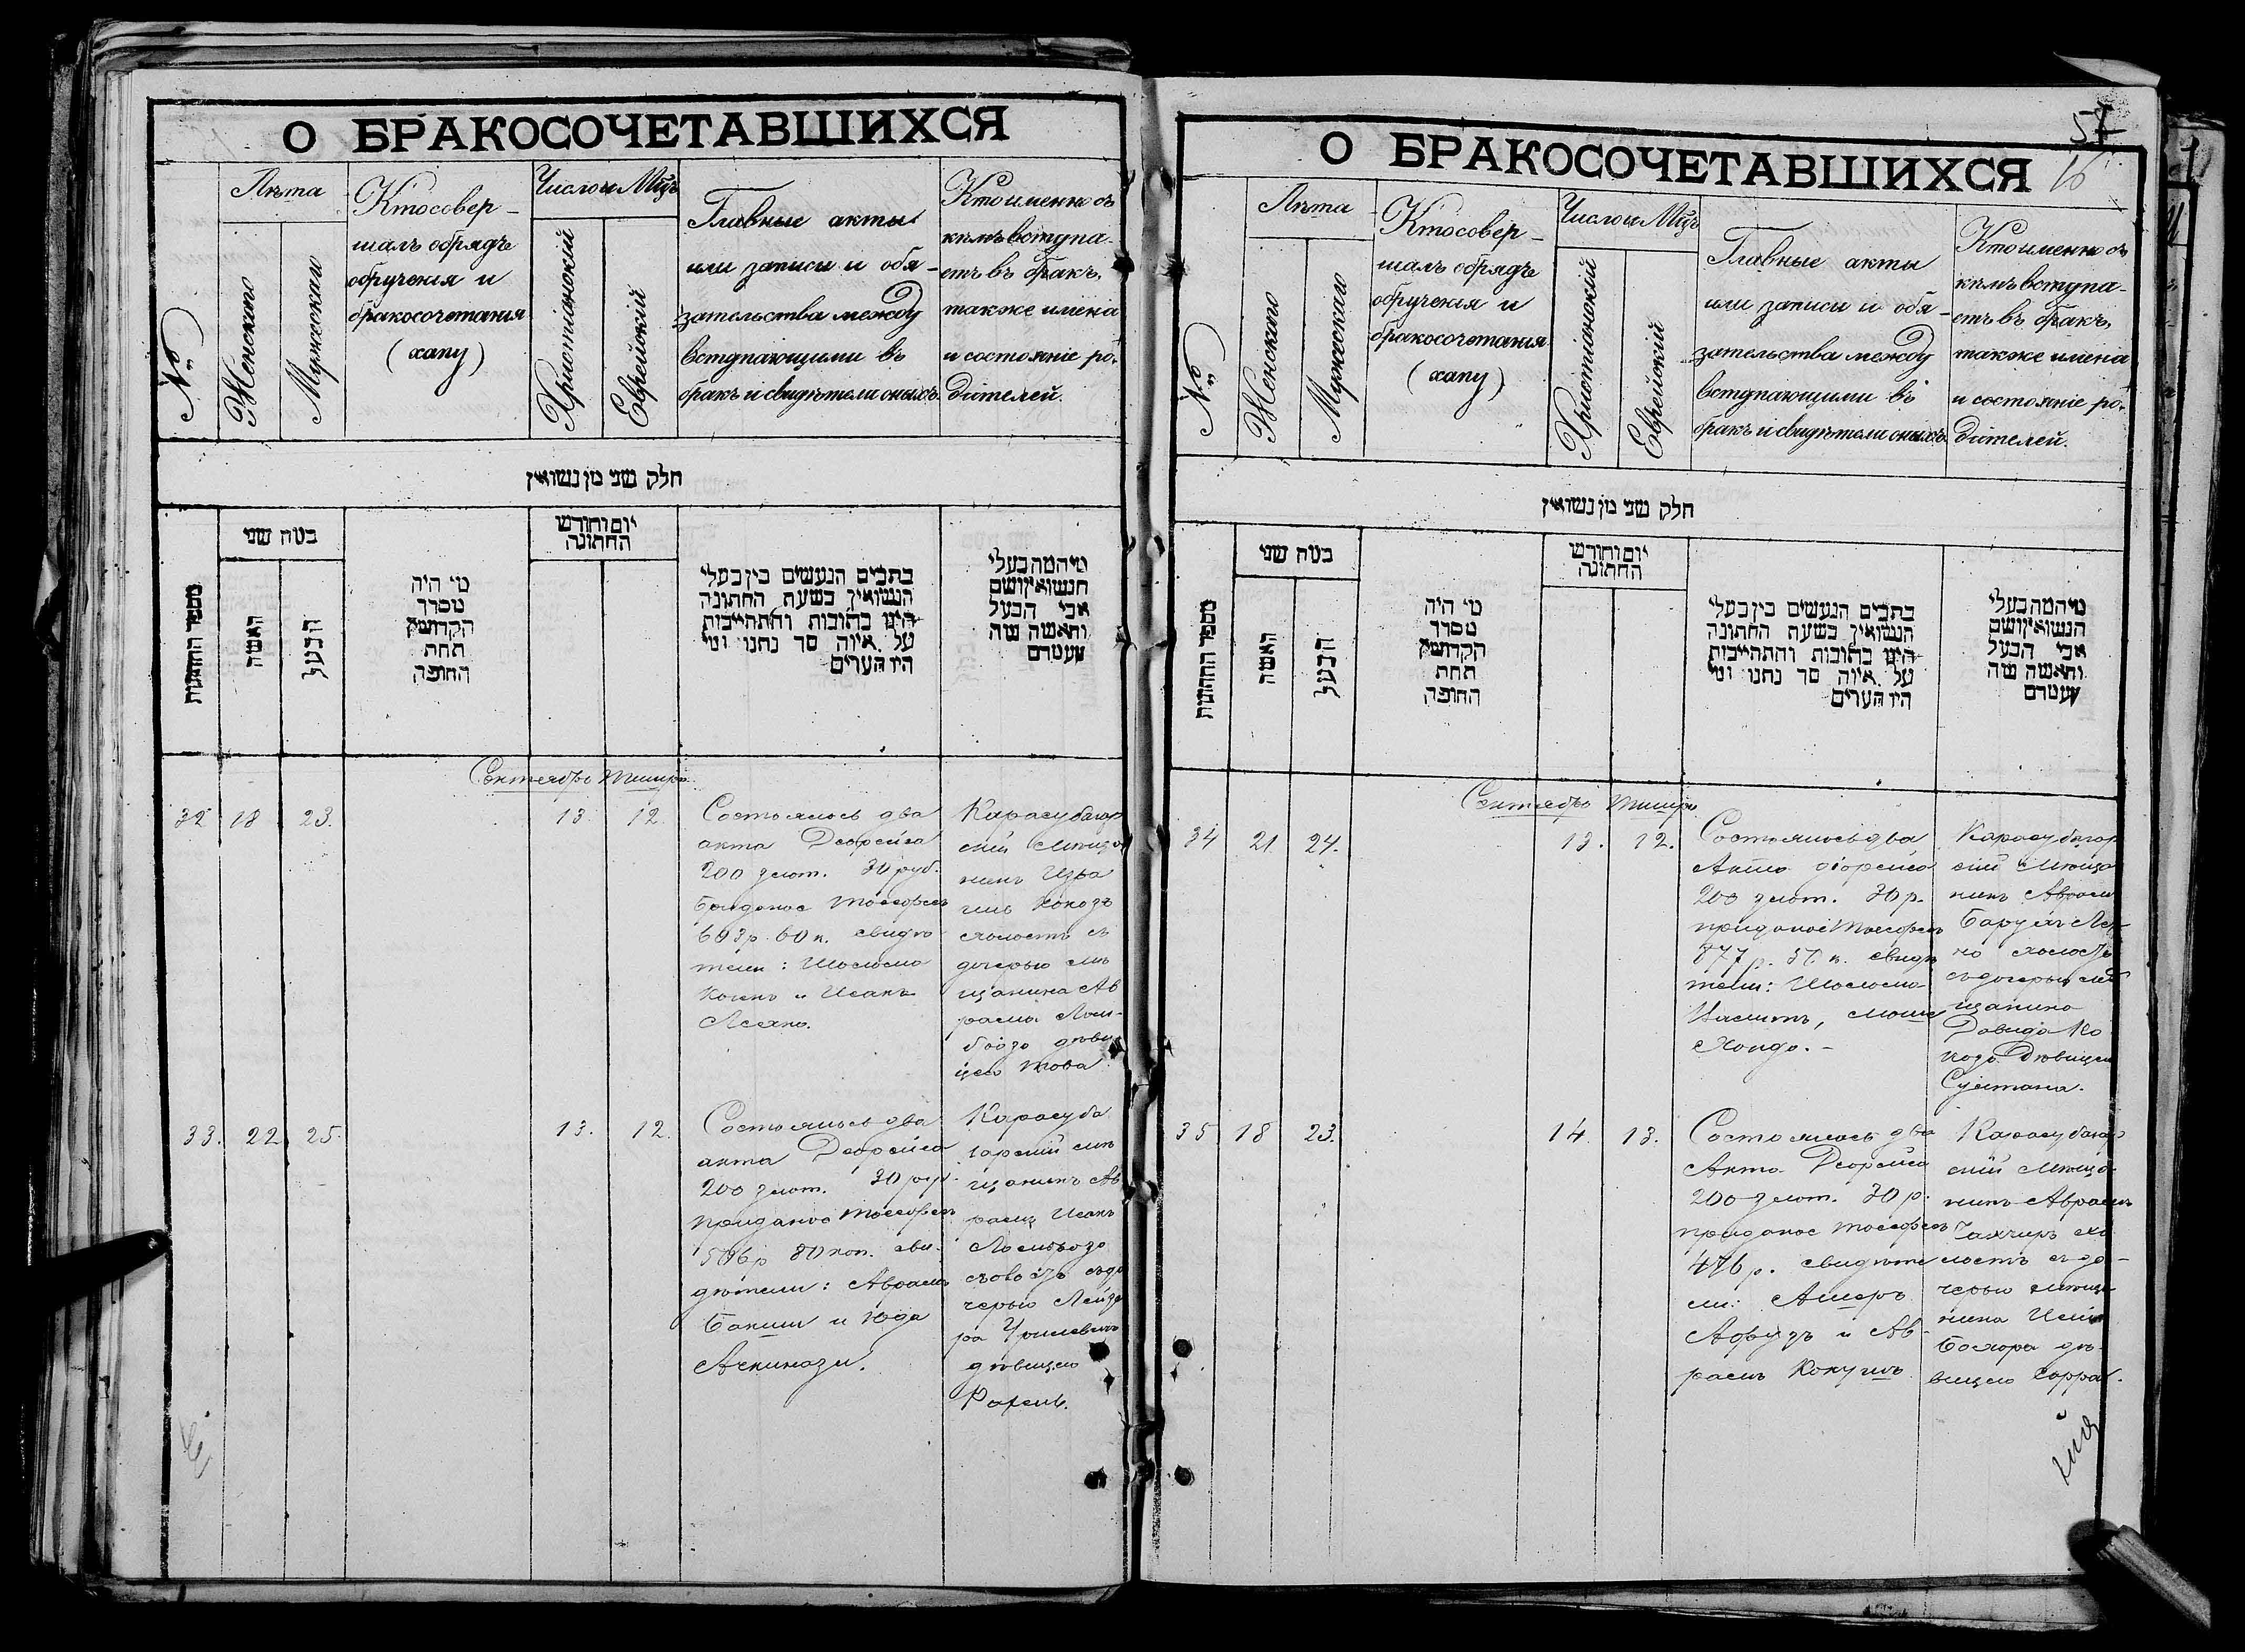 О БРАКОСОЧЕТАВШИХСЯ
№
Лѣта
Женскаго
Мужескаго
Кто совер-
шалъ обрядъ
обрученія и
бракосочетанія
(хапу)
Число и Мцъ
Христіанскій
Еврейскій
Главные акты
или записи и обя-
зательства между
вступающими въ
бракъ и свидѣтели оныхъ.
Кто именно съ
кѣмъ вступа-
етъ въ бракъ,
также имена
и состояніе ро-
дителей.
חלק שני מן נשואין
מספר החתונות
כמה שני
האשה
הבעל
מי היה
מסדר
הקדושין
תחת
החופה
יום וחודש
החתונה
כתבים הנעשים בין בעלי
הנשואין בשעת החתונה
היינו כתובות והתחייבות
על איזה סך נתנו ומי
היו העדים
מי המה בעלי
הנשואין ושם
אבי הבעל
והאשה ומה
מעמדם
Сентябрь Тишри
32 18 23. 13 12.
Состоялось два
акта Деорейса
200 злот. 30 руб.
Приданое Тосефесъ
603 р. 60 к. свидѣ
тели: Шоломо
Когенъ и Исакъ
Леяно.
Карасубазар
скій мѣща
нинъ Изра
иль Кокозъ
холостъ съ
дочерью мѣ
щанина Ав
рама Лом-
брозо дѣви
цею Това
33. 22 25. 13. 12.
Состоялось два
акта Деорейса
200 злот. 30 руб.
приданое Тосефесъ
506 р 80 коп. сви-
дѣтели: Авраамъ
Бакши и Юда
Ашкинази.
Карасуба
зарскій мѣ
щанинъ Ав
рамъ Исакъ
Ломброзо
съ до
черью Лейзе
ра Уриловичъ
дѣвицею
Рахель.
О БРАКОСОЧЕТАВШИХСЯ
57
16
№
Лѣта
Женскаго
Мужескаго
Кто совер-
шалъ обрядъ
обрученія и
бракосочетанія
(хапу)
Число и Мцъ
Христіанскій
Еврейскій
Главные акты
или записи и обя-
зательства между
вступающими въ
бракъ и свидѣтели оныхъ.
Кто именно съ
кѣмъ вступа-
етъ въ бракъ,
также имена
и состояніе ро-
дителей.
חלק שני מן נשואין
מספר החתונות
כמה שני
האשה
הבעל
מי היה
מסדר
הקדושין
תחת
החופה
יום וחודש
החתונה
כתבים הנעשים בין בעלי
הנשואין בשעת החתונה
היינו כתובות והתחייבות
על איזה סך נתנו ומי
היו העדים
מי המה בעלי
הנשואין ושם
אבי הבעל
והאשה ומה
מעמדם
Сентябрь Тишри
34 21 24. 13. 12.
Состоялось два
Акта Деорейса
200 злот. 30 р.
приданое Тосефесъ
877 р. 50 к. свидѣ
тели: Шоломо
Мошe
Хондо.-
Карасубазар
скій мѣща
нинъ Авраам
Барухъ
холостъ
съ дочерью мѣ
щанина
Давида Ко
козъ Дѣвицею
Султана.
35 18 23. 14. 13.
Состоялось два
Акта Деорейса
200 злот. 30 р.
приданое Тосефесъ
476 р. свидѣте
ли: Ашеръ
Афуцъ и Ав-
рамъ Кокушъ
Карасубазар
скій мѣща
нинъ Авраамъ
хо
лостъ съ до-
черью мѣща
нина
Бохора дѣ-
вицею Сарра.